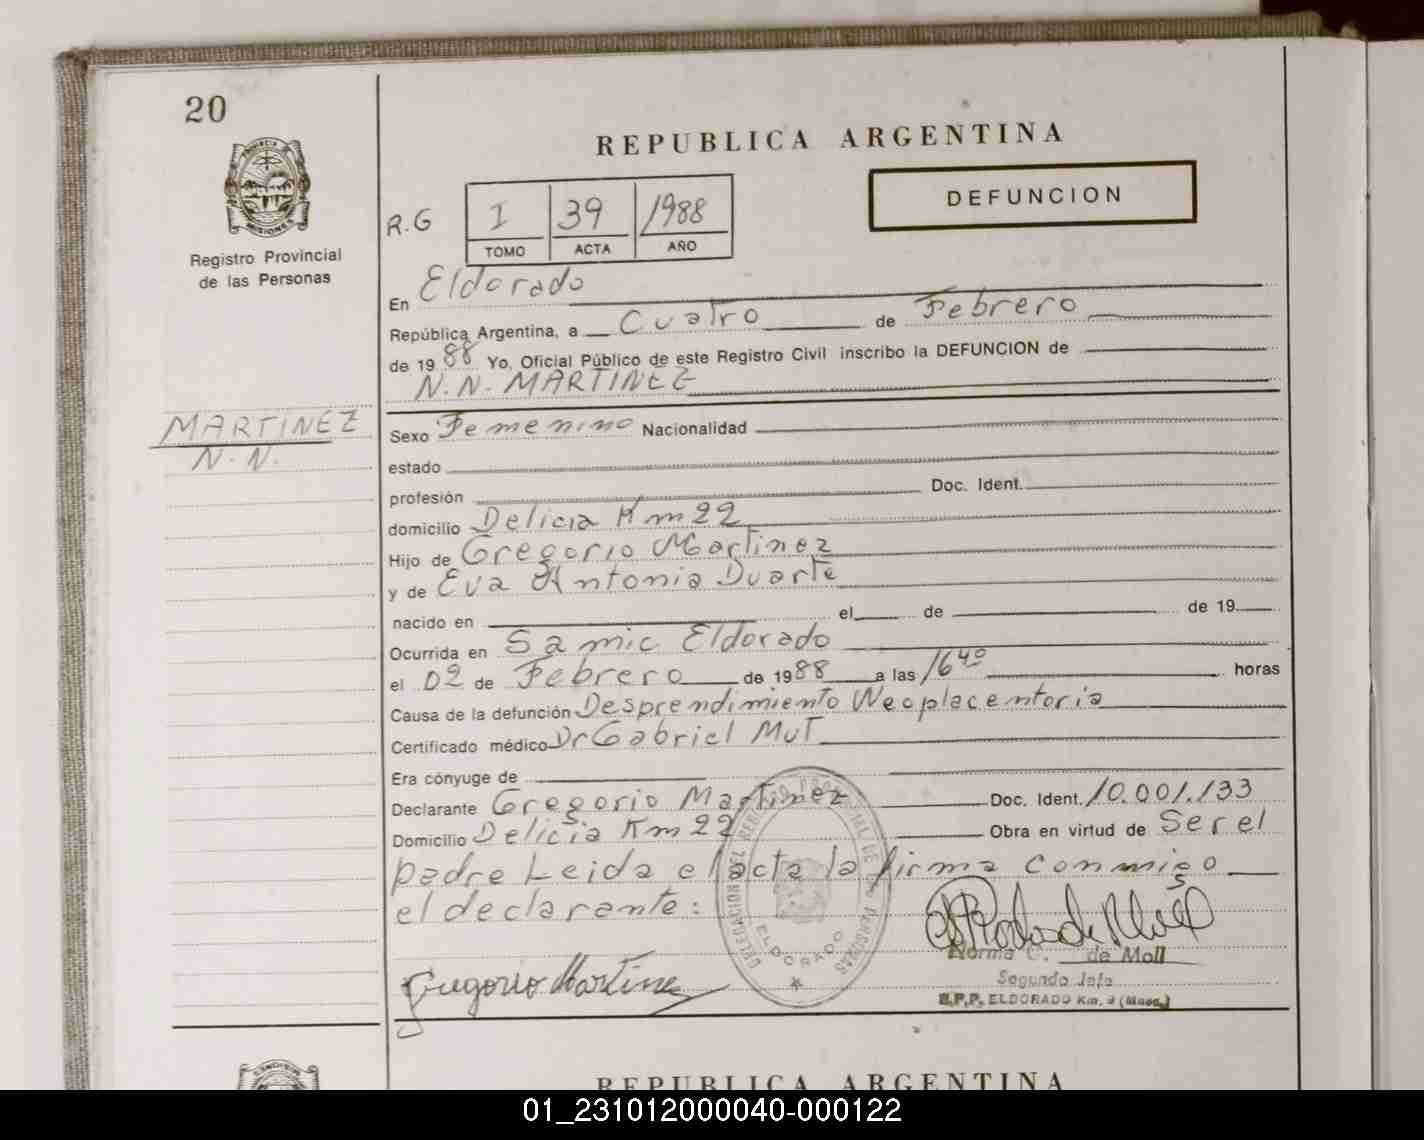 20
REPUBLICA ARGENTINA
DEFUNCION
R.G I 39 1988
TOMO ACTA AÑO
MISIONES
Registro Provincial
de las Personas
En Eldorado
República Argentina, a Cuatro de Febrero
de 1988 Yo, Oficial Público de este Registro Civil inscribo la DEFUNCION de
N.N. MARTINEZ
MARTINEZ
N.N.
Sexo Femenino Nacionalidad
estado
profesión Doc. Ident.
domicilio Delicia Km 22
Hijo de Gregorio Martinez
y de Eva Antonia Duarte
nacido en el de de 19
Ocurrida en Samic Eldorado
el 02 de Febrero de 1988 a las 16 40 horas
Causa de la defunción Desprendimiento Neoplacentoria
Certificado médico Dr Gabriel Mut
Era cónyuge de
Declarante Gregorio Martinez Doc. Ident. 10.001.133
Domicilio Delicia Km 22 Obra en virtud de Ser el
padre Leida el acta la firma conmigo
el declarante:
DELEGACION DEL REGISTRO PROVINCIAL DE LAS PERSONAS
ELDORADO
Gregorio Martinez
Norma C. de Moll
Segundo Jefe
R.P.P. ELDORADO Km. 9 (Mnes.)
REPUBLICA ARGENTINA
01_231012000040-000122